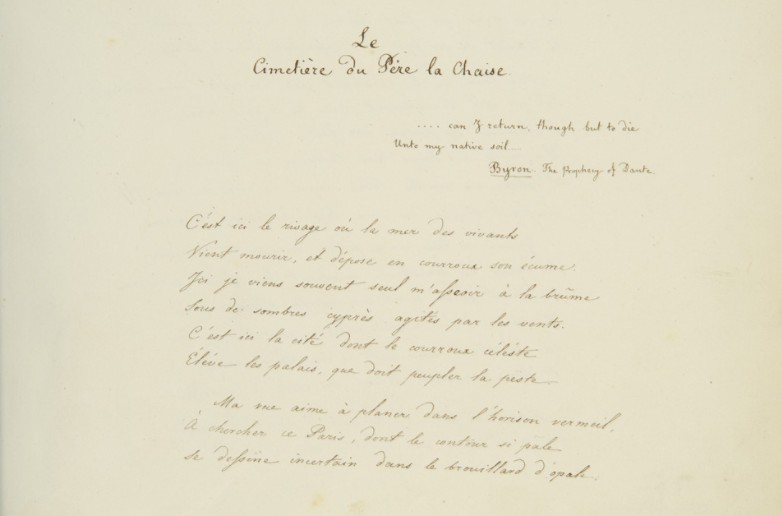 Le
Cimetière du Père la Chaise.
.... can I return, though but to die
Unto my native soil
Byron. The Prophecy of Dante.
C'est ici le rivage où la mer des vivants
Vient mourir, et dépose en courroux son écume.
Ici je viens souvent seul m'asseoir à la brûme
Sous de sombres cyprès agités par les vents.
C'est ici la cité dont le courroux céléste
Élève les palais, que doit peupler la peste.
Ma vue aime à planer dans l'horison vermeil.
À chercher ce Paris, dont le contour si pâle
Se dessine incertain dans le brouillard d'opale.